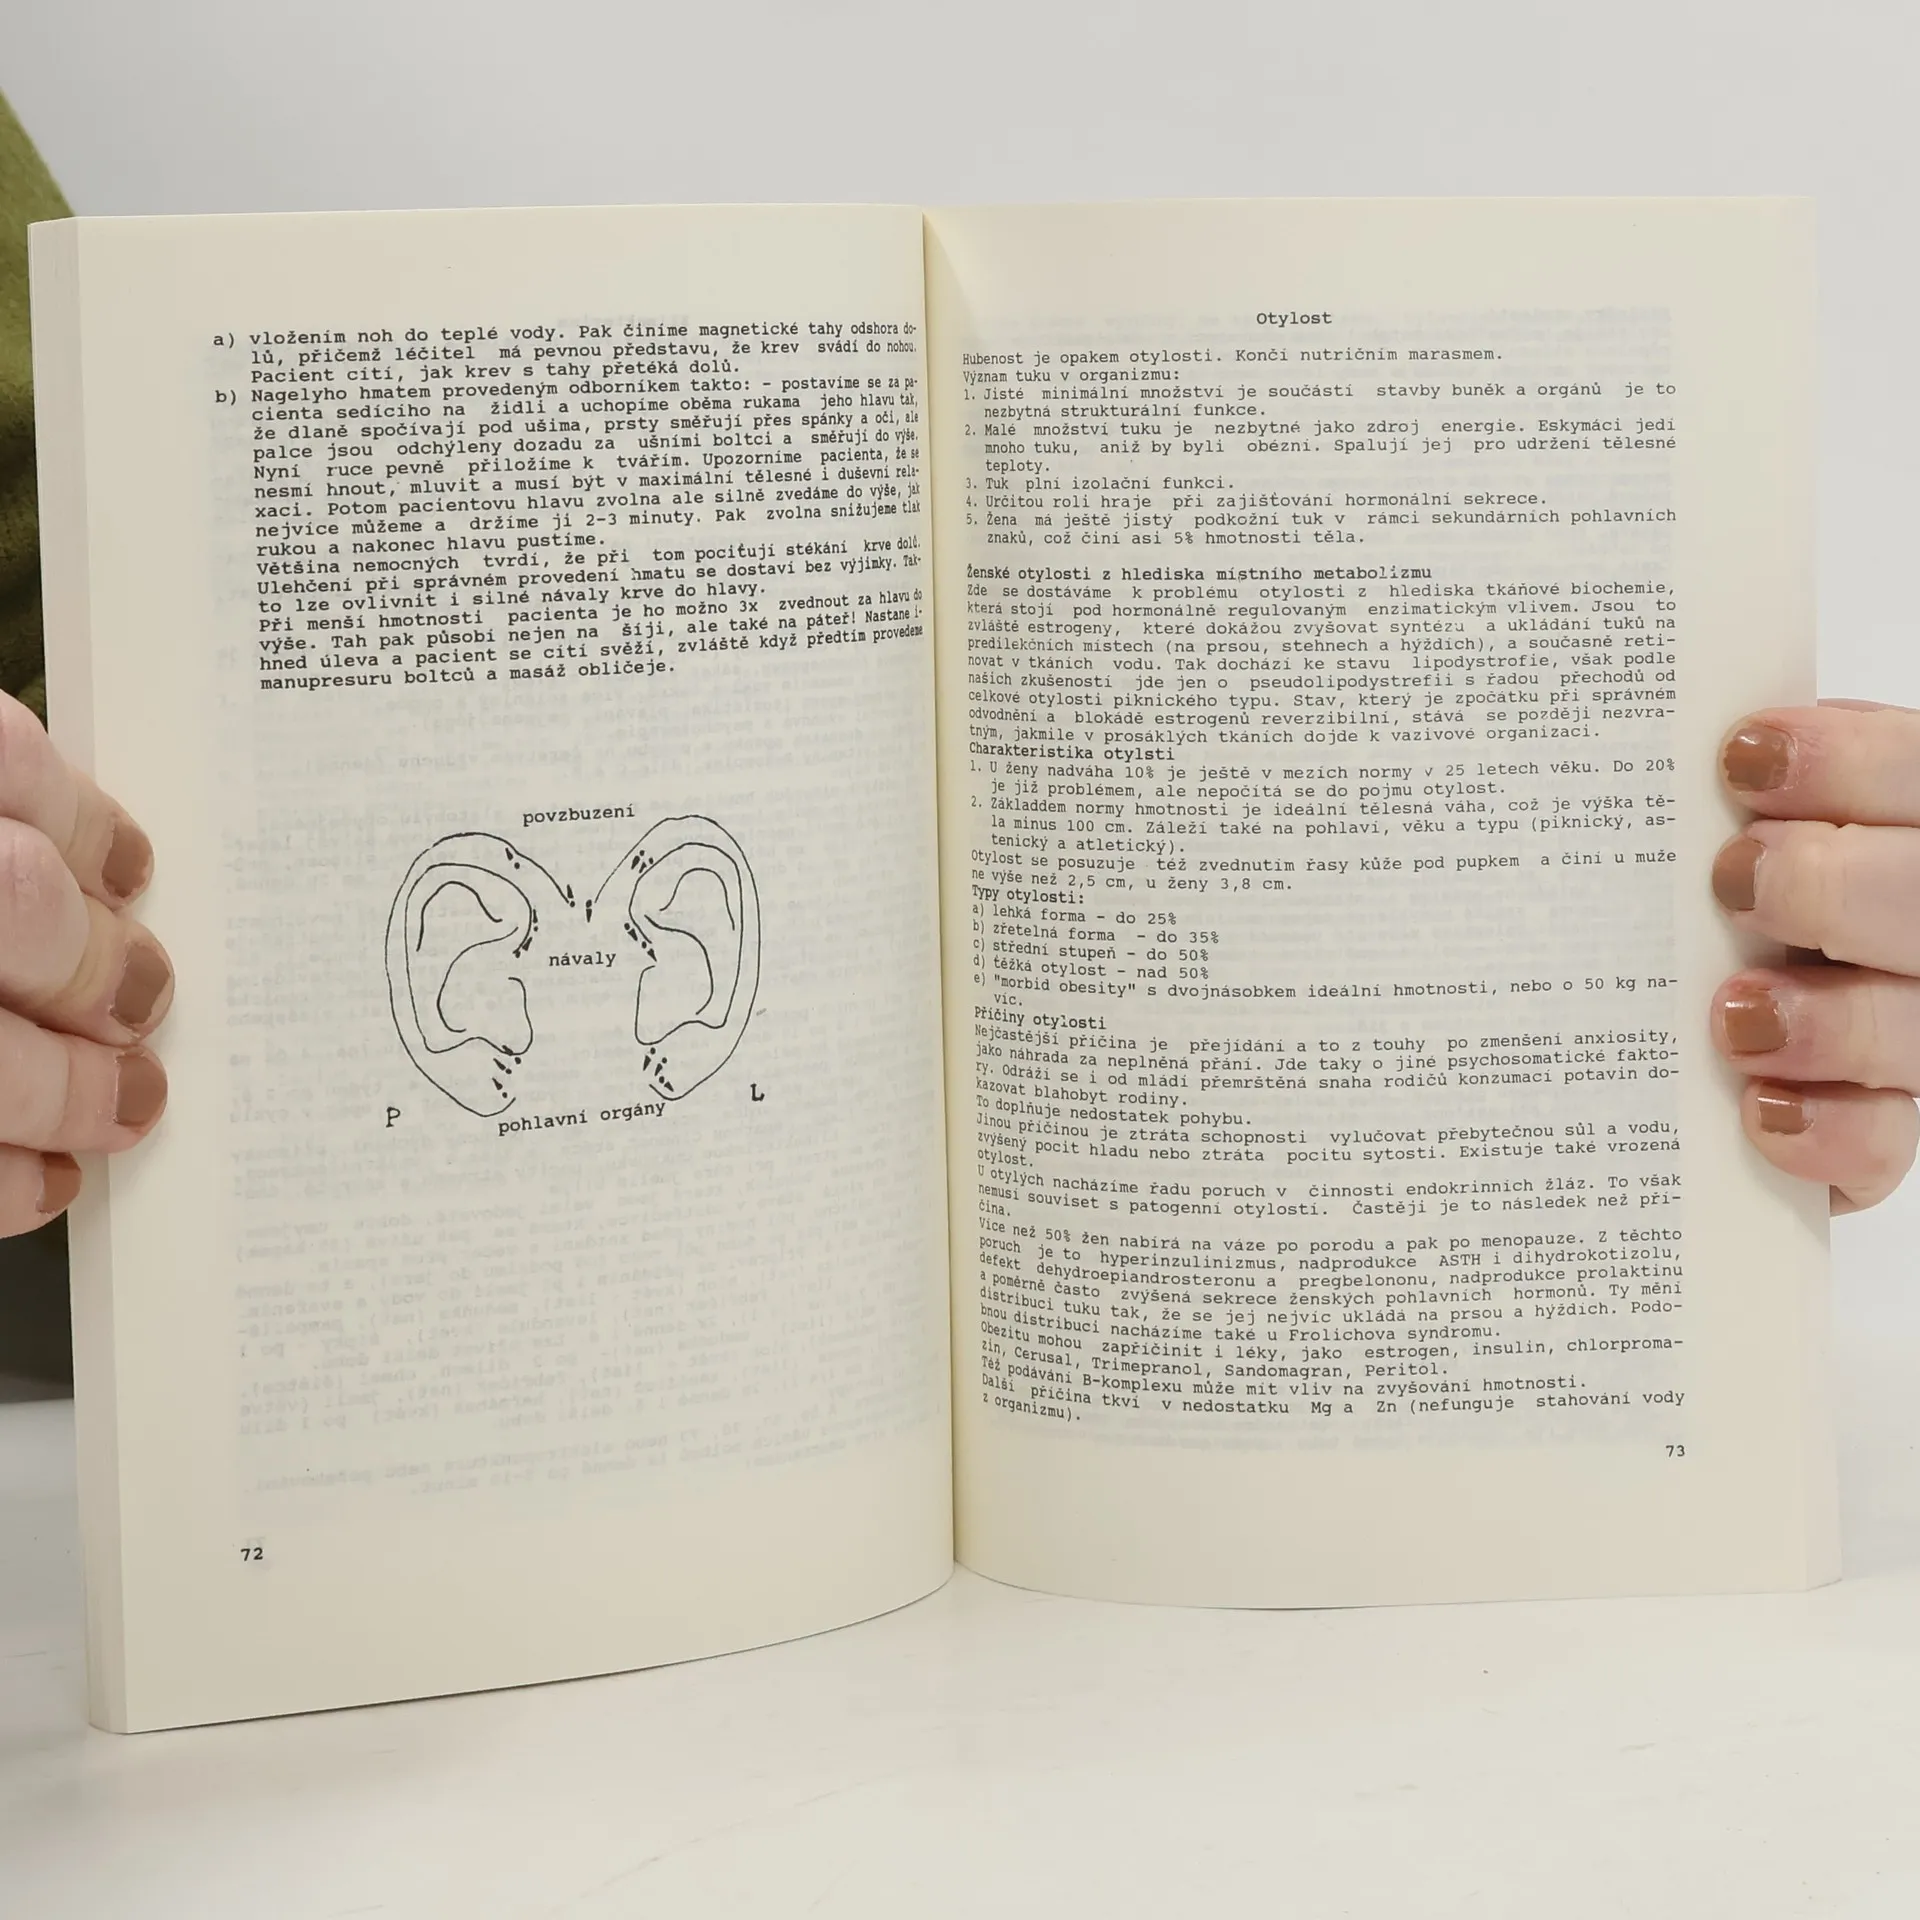 a) vložením noh do teplé vody. Pak činíme magnetické tahy odshora do-
lů, přičemž léčitel má pevnou představu, že krev svádí do nohou.
Pacient cítí, jak krev s tahy přetéká dolů.
b) Nagelyho hmatem provedeným odborníkem takto: - postavíme se za pa-
cienta sedícího na židli a uchopíme oběma rukama jeho hlavu tak,
že dlaně spočívají pod ušima, prsty směřují přes spánky a oči, ale
palce jsou odchýleny dozadu za ušními boltci a směřují do výše.
Nyní ruce pevně přiložíme k tvářím. Upozorníme pacienta, že se
nesmí hnout, mluvit a musí být v maximální tělesné i duševní rela-
xaci. Potom pacientovu hlavu zvolna ale silně zvedáme do výše, jak
nejvíce můžeme a držíme ji 2-3 minuty. Pak zvolna snižujeme tlak
rukou a nakonec hlavu pustíme.
Většina nemocných tvrdí, že při tom pociťují stékání krve dolů.
Ulehčení při správném provedení hmatu se dostaví bez výjimky. Tak-
to lze ovlivnit i silné návaly krve do hlavy.
Při menší hmotnosti pacienta je ho možno 3x zvednout za hlavu do
výše. Tah pak působí nejen na šíji, ale také na páteř! Nastane i-
hned úleva a pacient se cítí svěží, zvláště když předtím provedeme
manupresuru boltců a masáž obličeje.
povzbuzení
návaly
P
L
pohlavní orgány
72
Otylost
Hubenost je opakem otylosti. Končí nutričním marasmem.
Význam tuku v organizmu:
1. Jisté minimální množství je součástí stavby buněk a orgánů je to
nezbytná strukturální funkce.
2. Malé množství tuku je nezbytné jako zdroj energie. Eskymáci jedí
mnoho tuku, aniž by byli obézní. Spalují jej pro udržení tělesné
teploty.
3. Tuk plní izolační funkci.
4. Určitou roli hraje při zajišťování hormonální sekrece.
5. Žena má ještě jistý podkožní tuk v rámci sekundárních pohlavních
znaků, což činí asi 5% hmotnosti těla.
Ženské otylosti z hlediska místního metabolizmu
Zde se dostáváme k problému otylosti z hlediska tkáňové biochemie,
která stojí pod hormonálně regulovaným enzimatickým vlivem. Jsou to
zvláště estrogeny, které dokážou zvyšovat syntézu a ukládání tuků na
predilekčních místech (na prsou, stehnech a hýždích), a současně reti-
novat v tkáních vodu. Tak dochází ke stavu lipodystrofie, však podle
našich zkušeností jde jen o pseudolipodystrefii s řadou přechodů od
celkové otylosti piknického typu. Stav, který je zpočátku při správném
odvodnění a blokádě estrogenů reverzibilní, stává se později nezvra-
tným, jakmile v prosáklých tkáních dojde k vazivové organizaci.
Charakteristika otylsti
1. U ženy nadváha 10% je ještě v mezích normy v 25 letech věku. Do 20%
je již problémem, ale nepočítá se do pojmu otylost.
2. Základdem normy hmotnosti je ideální tělesná váha, což je výška tě-
la minus 100 cm. Záleží také na pohlaví, věku a typu (piknický, as-
tenický a atletický).
Otylost se posuzuje též zvednutím řasy kůže pod pupkem a činí u muže
ne výše než 2,5 cm, u ženy 3,8 cm.
Typy otylosti:
a) lehká forma - do 25%
b) zřetelná forma - do 35%
c) střední stupeň - do 50%
d) těžká otylost - nad 50%
e) "morbid obesity" s dvojnásobkem ideální hmotnosti, nebo o 50 kg na-
víc.
Příčiny otylosti
Nejčastější příčina je přejídání a to z touhy po zmenšení anxiosity,
jako náhrada za neplněná přání. Jde taky o jiné psychosomatické fakto-
ry. Odráží se i od mládí přemrštěná snaha rodičů konzumací potavin do-
kazovat blahobyt rodiny.
To doplňuje nedostatek pohybu.
Jinou příčinou je ztráta schopnosti vylučovat přebytečnou sůl a vodu,
zvýšený pocit hladu nebo ztráta pocitu sytosti. Existuje také vrozená
otylost.
U otylých nacházíme řadu poruch v činnosti endokrinních žláz. To však
nemusí souviset s patogenní otylosti. Častěji je to následek než pří-
čina.
Více než 50% žen nabírá na váze po porodu a pak po menopauze. Z těchto
poruch je to hyperinzulinizmus, nadprodukce ASTH i dihydrokotizolu,
defekt dehydroepiandrosteronu a pregbelononu, nadprodukce prolaktinu
a poměrně často zvýšená sekrece ženských pohlavních hormonů. Ty mění
distribuci tuku tak, že se jej nejvíc ukládá na prsou a hýždích. Podo-
bnou distribuci nacházíme také u Frolichova syndromu.
Obezitu mohou zapříčinit i léky, jako estrogen, insulin, chlorproma-
zin, Cerusal, Trimepranol, Sandomagran, Peritol.
Též podávání B-komplexu může mít vliv na zvyšování hmotnosti.
Další příčina tkví v nedostatku Mg a Zn (nefunguje stahování vody
z organizmu).
73